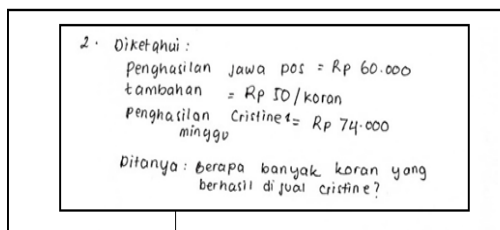 2. Diketahui :
Penghasilan Jawa pos = Rp 60.000
tambahan = Rp 50/koran
Penghasilan Cristine 1 = Rp 74.000
minggu
Ditanya : Berapa banyak koran yang
berhasil di jual cristine?